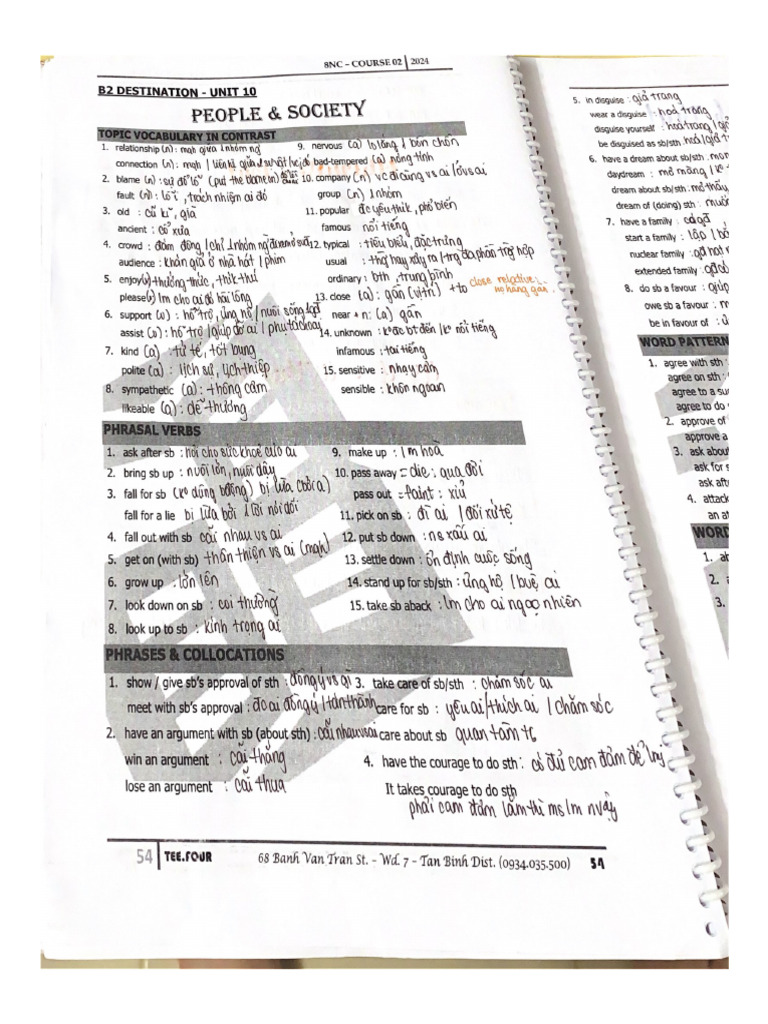 8NC – COURSE 02 | 2024
B2 DESTINATION - UNIT 10
PEOPLE & SOCIETY
TOPIC VOCABULARY IN CONTRAST
1. relationship (n): mqh giữa 1 nhóm ng
connection (n): mqh / liên kị giữa 1 sự vật
2. blame (n): sự đổ lỗi (put the blame in)
fault (n): lỗi, trách nhiệm ai đó
3. old : cũ kĩ, già
ancient : cổ xưa
4. crowd : đám đông / chỉ 1 nhóm ng
audience : khán giả ở nhà hát / phim
5. enjoy(v): thưởng thức, thik thú
please(v) lm cho ai đó hài lòng
6. support (v) : hỗ trợ, ủng hộ / nuôi sống
assist (v) : hỗ trợ / giúp đỡ ai / phụ tá
7. kind (a) : tử tế, tốt bụng
polite (a) : lịch sự, lịch thiệp
8. sympathetic (a) : thông cảm
likeable (a) : dễ thương
9. nervous (a) lo lắng / bồn chồn
bad-tempered (a) nóng tính
10. company (n) vc đi cùng vs ai / ở vs ai
group (n) 1 nhóm
11. popular đc yêu thik, phổ biến
famous nổi tiếng
12. typical : tiêu biểu, đặc trưng
usual : thg hay xảy ra /
ordinary : bth, trung bình
13. close (a) : gần (vị trí) + to close relative: họ hàng gần
near + n: (a) gần
14. unknown : ko đc bt đến / ko nổi tiếng
infamous : tai tiếng
15. sensitive : nhạy cảm
sensible : khôn ngoan
PHRASAL VERBS
1. ask after sb : hỏi cho sức khoẻ của ai
2. bring sb up : nuôi lớn, nuôi dậy
3. fall for sb (ko dùng bị động) bị lừa (bởi a)
fall for a lie bị lừa bởi 1 lời nói dối
4. fall out with sb cãi nhau vs ai
5. get on (with sb) thân thiện vs ai (mqh)
6. grow up : lớn lên
7. look down on sb : coi thường
8. look up to sb : kính trọng ai
9. make up : lm hoà
10. pass away = die : qua đời
pass out = faint : xỉu
11. pick on sb : đì ai / đối xử tệ
12. put sb down : ns xấu ai
13. settle down : ổn định cuộc sống
14. stand up for sb/sth : ủng hộ / bvệ ai
15. take sb aback : lm cho ai ngạc nhiên
PHRASES & COLLOCATIONS
1. show / give sb's approval of sth : đồng ý vs gì
meet with sb's approval : đc ai đồng ý / tán thành
2. have an argument with sb (about sth) : cãi nhau vs ai
win an argument : cãi thắng
lose an argument : cãi thua
3. take care of sb/sth : chăm sóc ai
care for sb : yêu ai / thích ai / chăm sóc
care about sb quan tâm
4. have the courage to do sth : có đủ can đảm để lm j
It takes courage to do sth
phải can đảm lắm thì ms lm
54 | TEE.FOUR 68 Banh Van Tran St. - Wd. 7 - Tan Binh Dist. (0934.035.500) 54
5. in disguise : giả trang
wear a disguise : hoá trang
disguise yourself : hoá trang /
be disguised as sb/sth : hoá / giả
6. have a dream about sb/sth :
daydream : mơ mộng / ko
dream about sb/sth : mơ thấy
dream of (doing) sth :
7. have a family : có gđ
start a family : lập
nuclear family : gđ hạt n
extended family : gđ
8. do sb a favour : giúp
owe sb a favour :
be in favour of :
WORD PATTERN
1. agree with sth :
agree on sth :
agree to a su
agree to do
2. approve of
approve a
3. ask about
ask for s
ask aft
4. attack
an at
WORD
1. ab
2.
3.